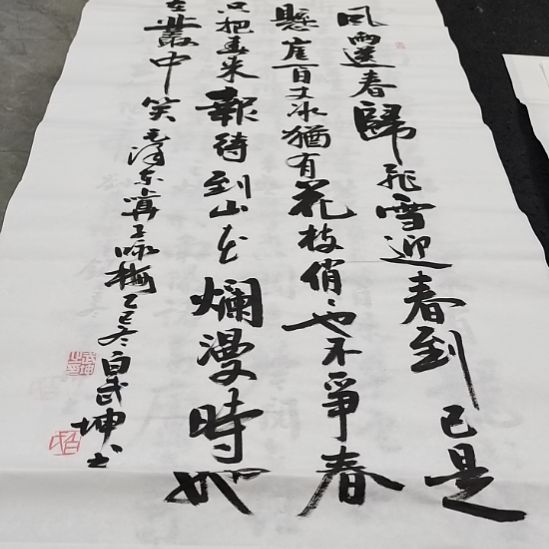 風雨送春歸飛雪迎春到已是
懸崖百丈冰猶有花枝俏〻也不爭春
只把春來報待到山花爛漫時她
在叢中笑 毛澤东算子咏梅乙巳冬白武坤书